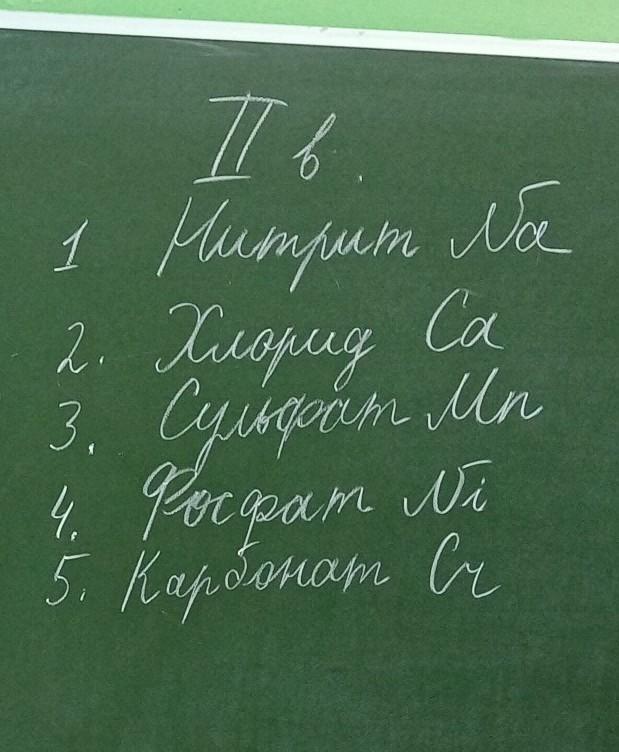 II в.
1 Нитрит Na
2. Хлорид Ca
3. Сульфат Mn
4. Фосфат Ni
5. Карбонат Cr